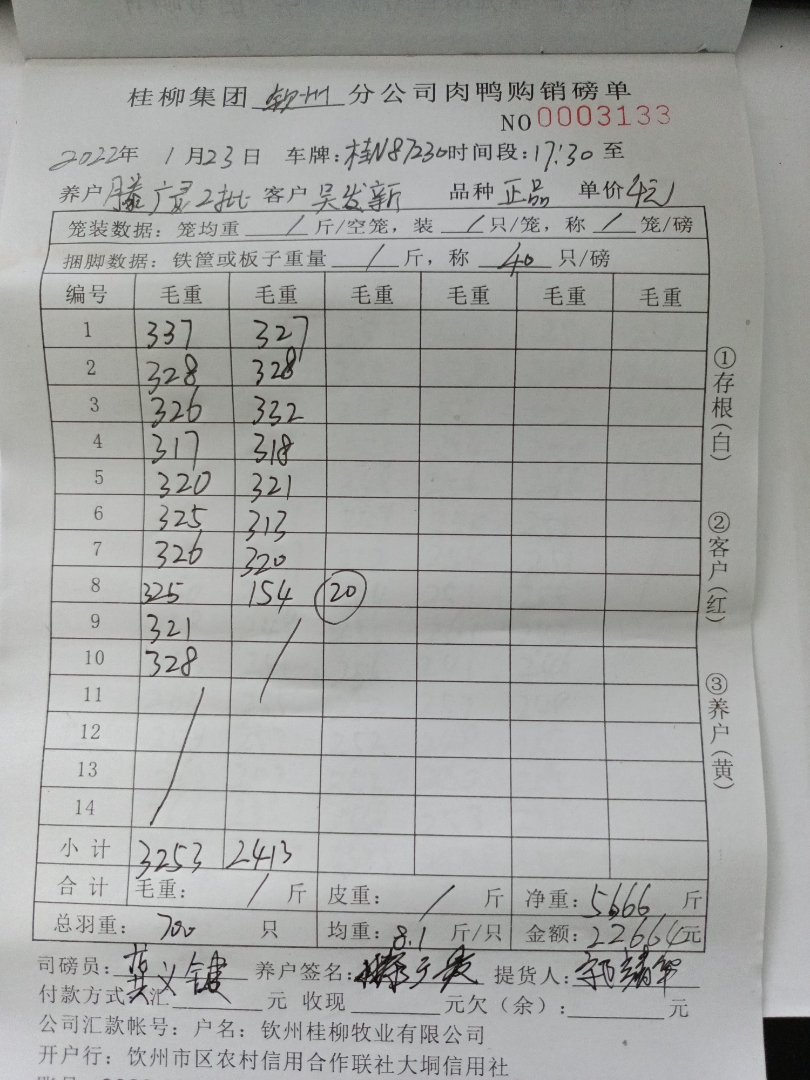 桂柳集团 钦州 分公司肉鸭购销磅单
NO 0003133
2022年 1月23日 车牌:桂N87230 时间段:17:30 至
养户 滕广灵2批 客户 吴发新 品种 正品 单价 4元
笼装数据:笼均重 / 斤/空笼,装 / 只/笼,称 / 笼/磅
捆脚数据:铁筐或板子重量 / 斤,称 40 只/磅
编号 毛重 毛重 毛重 毛重 毛重 毛重
1 337 327
2 328 328
3 326 332
4 317 318
5 320 321
6 325 313
7 326 320
8 325 154 20
9 321 /
10 328
11 /
12
13
14
小计 3253 2413
合计 毛重: / 斤 皮重: / 斤 净重:5666 斤
总羽重: 700 只 均重:8.1 斤/只 金额:22664元
司磅员: 养户签名: 提货人:
付款方式:汇 元 收现 元欠(余): 元
公司汇款帐号:户名:钦州桂柳牧业有限公司
开户行:钦州市区农村信用合作联社大垌信用社
①存根(白)
②客户(红)
③养户(黄)